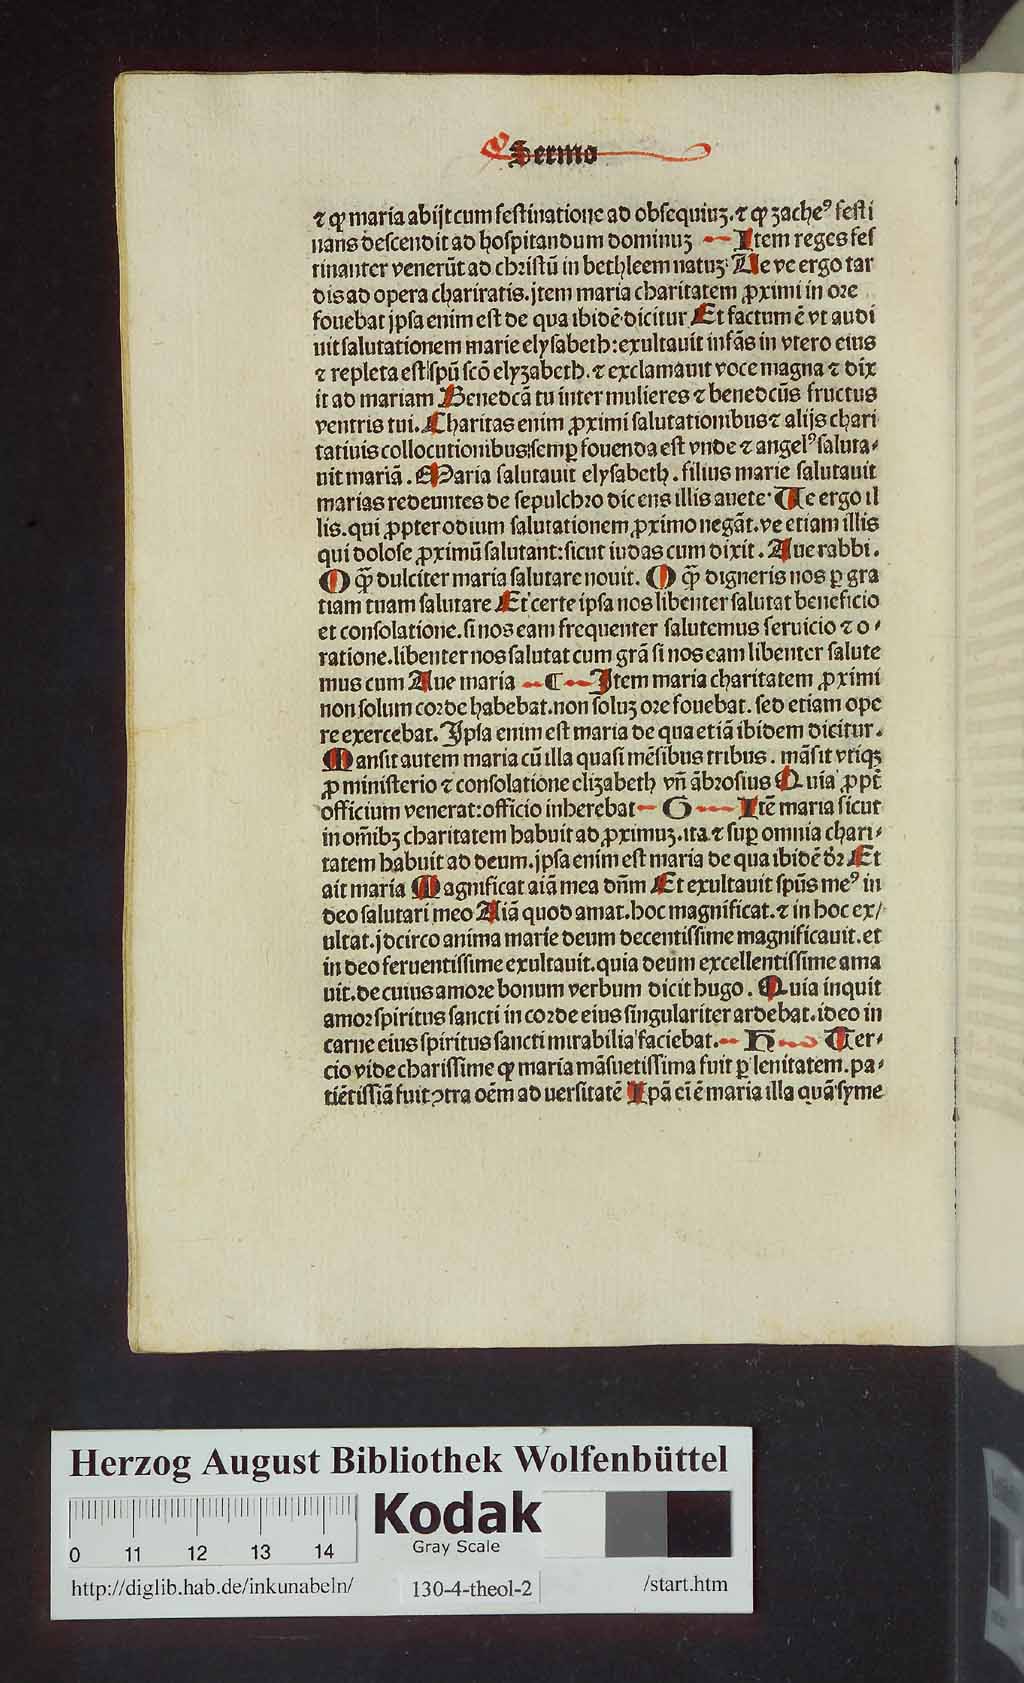 Sermo
⁊ ꝙ maria abijt cum festinatione ad obsequiuʒ. ⁊ ꝙ ʒacheꝰ festi
nans descendit ad hospitandum dominuʒ Item reges fes
tinanter venerūt ad christū in bethleem natuʒ: Ve ve ergo tar
dis ad opera chariratis. jtem maria charitatem ꝓximi in ore
fouebat jpsa enim est de qua ibidē dicitur Et factum ē vt audi
uit salutationem marie elysabeth: exultauit infās in vtero eius
⁊ repleta est spū scō elyʒabeth. ⁊ exclamauit voce magna ⁊ dix
it ad mariam Benedcā tu inter mulieres ⁊ benedcūs fructus
ventris tui. Charitas enim ꝓximi salutationibus ⁊ alijs chari
tatiuis collocutionibus semꝑ fouenda est vnde ⁊ angelꝰ saluta⸗
uit mariā. Maria salutauit elysabeth. filius marie salutauit
marias redeuntes de sepulchro dicens illis auete· Ve ergo il
lis. qui ꝓpter odium salutationem ꝓximo negāt. ve etiam illis
qui dolose ꝓximū salutant: sicut iudas cum dixit. Aue rabbi.
O qͣ̄ dulciter maria salutare nouit. O qͣ̄ digneris nos ꝑ gra
tiam tuam salutare Et certe ipsa nos libenter salutat beneficio
et consolatione. si nos eam frequenter salutemus seruicio ⁊ o⸗
ratione. libenter nos salutat cum grā si nos eam libenter salute
mus cum Aue maria C Item maria charitatem ꝓximi
non solum corde habebat. non soluʒ ore fouebat. sed etiam ope
re exercebat. Ipsa enim est maria de qua etiā ibidem dicitur.
Mansit autem maria cū illa quasi mēsibus tribus. māsit vtiqʒ
ꝓ ministerio ⁊ consolatione eliʒabeth vn̄ ābrosius Quia ꝓpt̄
officium venerat: officio inherebat G Itē maria sicut
in om̄ibʒ charitatem habuit ad ꝓximuʒ. ita ⁊ suꝑ omnia chari⸗
tatem habuit ad deum. jpsa enim est maria de qua ibidē dr̄ Et
ait maria Magnificat aīā mea dn̄m Et exultauit spūs meꝰ in
deo salutari meo Aīā quod amat. hoc magnificat. ⁊ in hoc ex/
ultat. jdcirco anima marie deum decentissime magnificauit. et
in deo feruentissime exultauit. quia deum excellentissime ama
uit. de cuius amore bonum verbum dicit hugo. Quia inquit
amor spiritus sancti in corde eius singulariter ardebat. ideo in
carne eius spiritus sancti mirabilia faciebat. H Ter⸗
cio vide charissime ꝙ maria māsuetissima fuit ꝑ lenitatem. pa⸗
tiētissīā fuit ↄtra oēm ad uersitatē Ipā eī ē maria illa quā syme
Herzog August Bibliothek Wolfenbüttel
0 11 12 13 14
Kodak
Gray Scale
http://diglib.hab.de/inkunabeln/ 130-4-theol-2 /start.htm